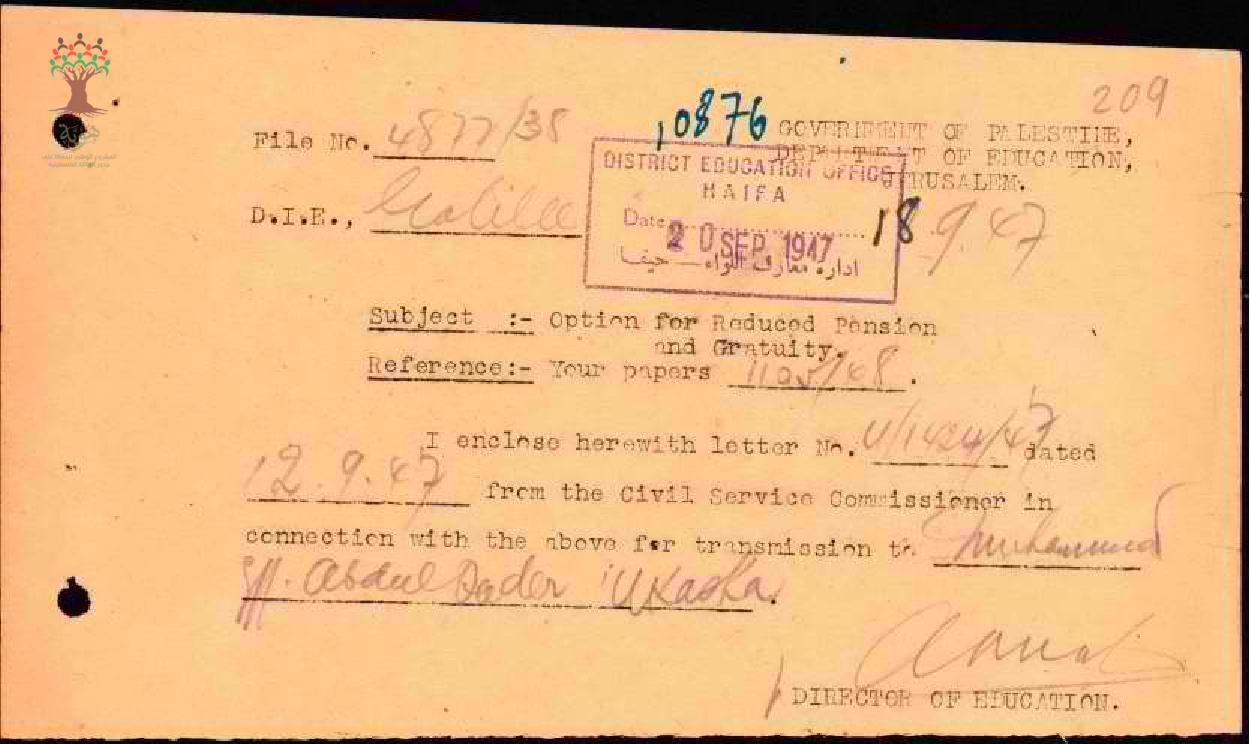 209
10876
File No. 4877/38
GOVERNMENT OF PALESTINE,
DEPARTMENT OF EDUCATION,
JERUSALEM.
DISTRICT EDUCATION OFFICE
HAIFA
Date
20 SEP 1947
ادارة معارف اللواء — حيفا
D.I.E., Galilee
18.9.47
Subject :- Option for Reduced Pension
and Gratuity.
Reference:- Your papers 1105/68.
I enclose herewith letter No. U/1424/47 dated
12.9.47 from the Civil Service Commissioner in
connection with the above for transmission to Muhammad
Eff. Abdul Qader 'Ukasha.
DIRECTOR OF EDUCATION.